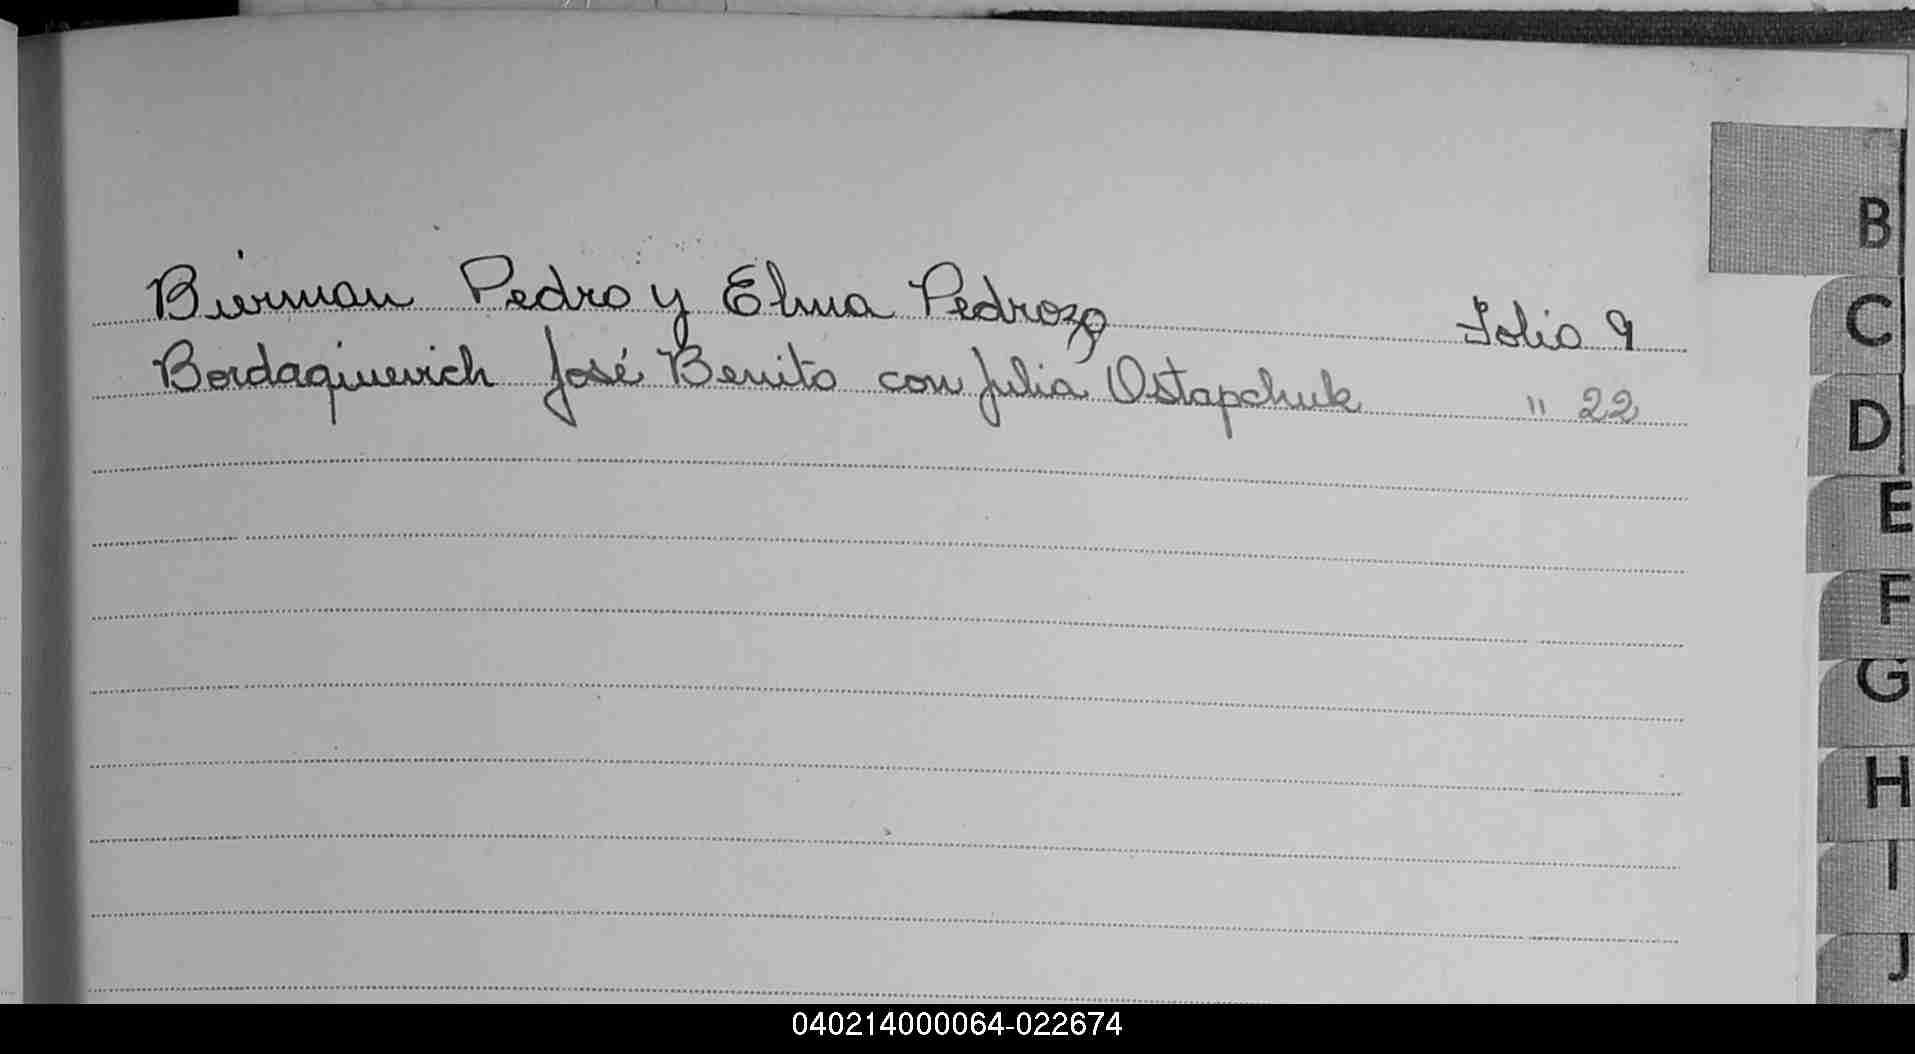 B
Bierman Pedro y Elma Pedrozo Folio 9
Bordaqiuevich José Benito con Julia Ostapchuk " 22
C
D
E
F
G
H
I
J
040214000064-022674